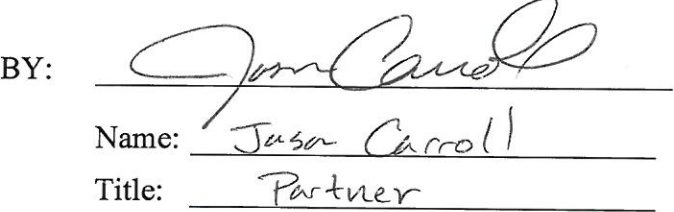 BY: Jason Carroll
Name: Jason Carroll
Title: Partner